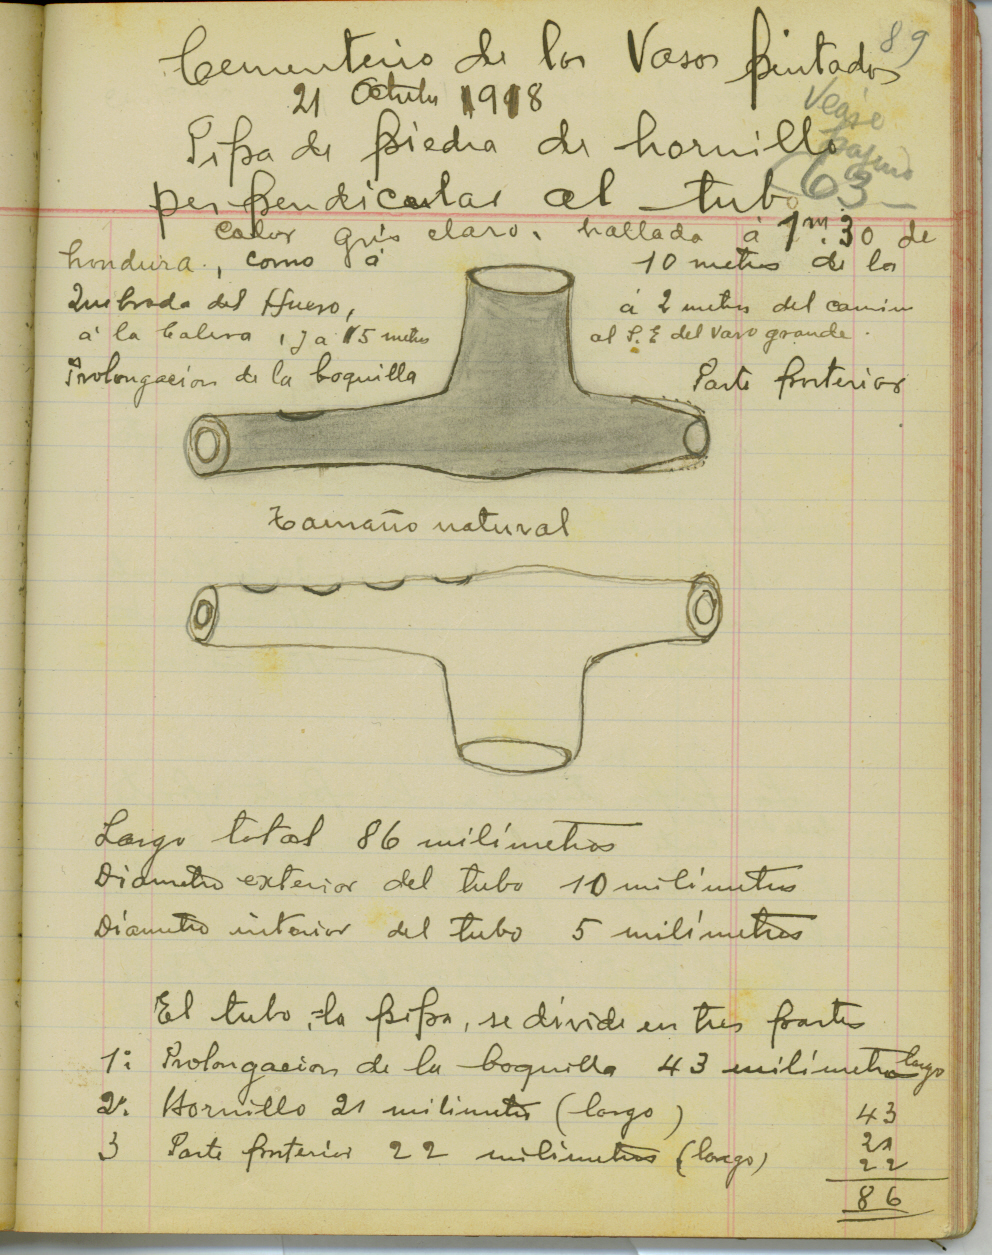 89
Cementerio de los Vasos pintados
21 Octubre 1918
Vease
pagina
63
Pipa de piedra de hornillo
perpendicular al tubo
Color gris claro, hallada à 1m.30 de
hondura, como à 10 metros de la
Quebrada del Hueso, à 2 metros del camino
à la Calera, y a 15 metros al S.E del Vaso grande.
Prolongacion de la boquilla
Parte posterior
Tamaño natural
Largo total 86 milímetros
Diametro exterior del tubo 10 milímetros
Diametro interior del tubo 5 milímetros
El tubo, la pipa, se divide en tres partes
1º Prolongacion de la boquilla 43 milímetros largo
2º Hornillo 21 milimetros (largo)
3 Parte posterior 22 milímetros (largo)
43
21
22
86